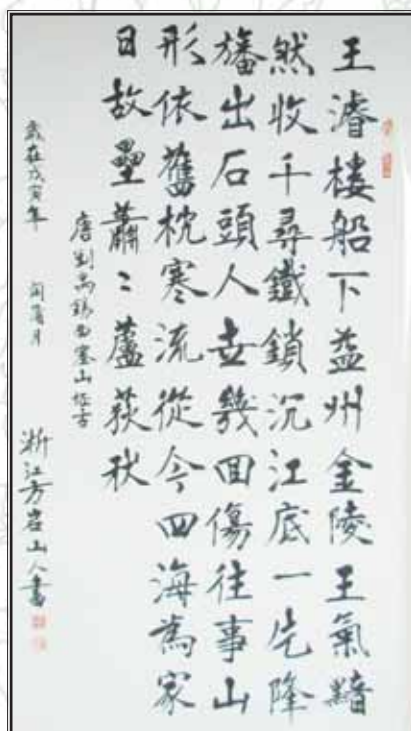 王濬楼船下益州金陵王氣黯
然收千尋鐵鎖沉江底一片降
旛出石頭人世幾回傷往事山
形依舊枕寒流從今四海為家
日故壘蕭〻蘆荻秋
唐劉禹錫西塞山怀古
歲在戊寅年 閏蒲月 浙江方岩山人書